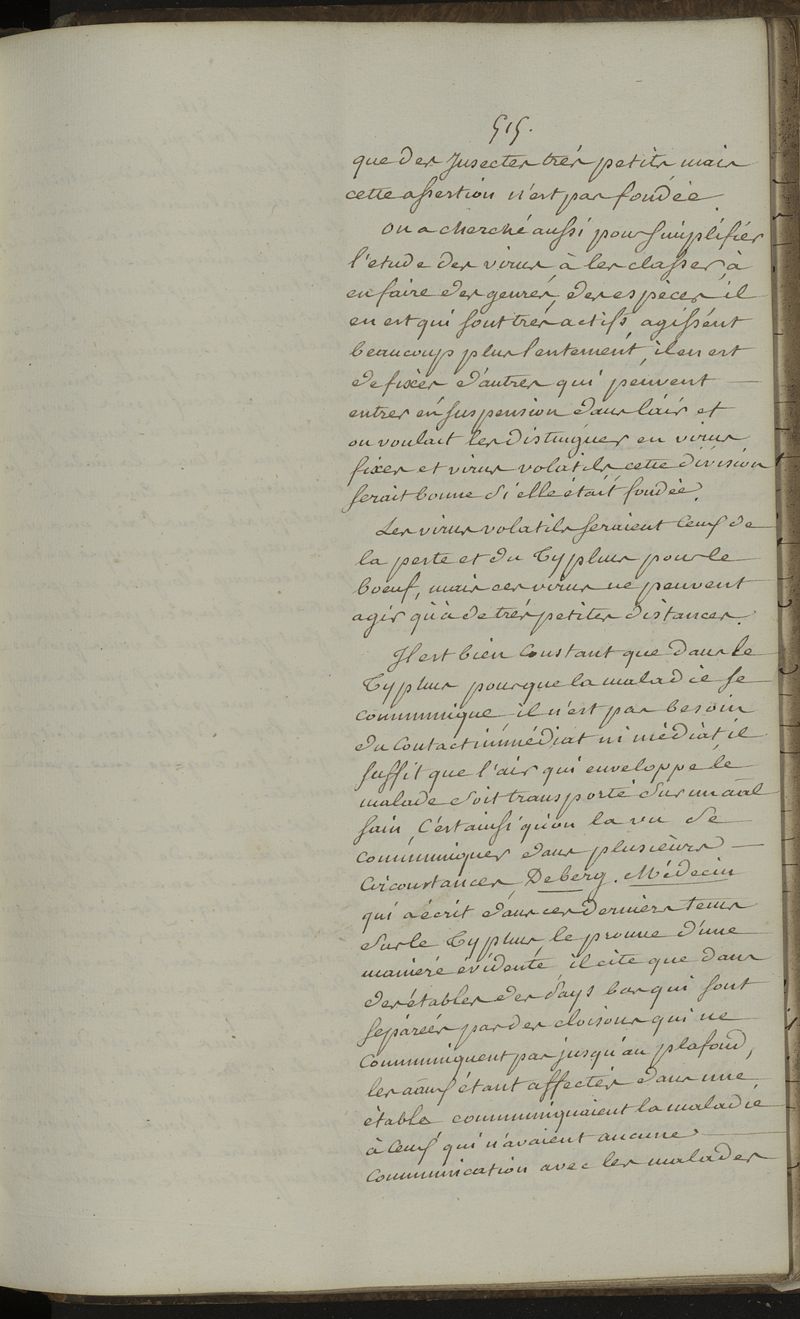 515.
que des Insectes très petits mais
cette assertion n'est pas fondée
on a cherché aussi pour simplifiér
l'etude des virus à les classer, à
en faire des genrés, des espèces, il
en est qui sont très actifs, agissént
beaucoup plus lentement, il en est
de fixés d'autres qui peuvent —
entrer en suspension dans l'air et
on voulait les distinguer en virus
fixes et virus volatils cette division
serait bonne si elle était fondée.
Les virus volatils seraient ceux de
la peste et du Typhus pour le
boeuf, mais ces virus ne peuvent
agir qu'à de très petites distances.
Il est bien constant que dans le
Typhus pour que la maladie se
communique, il n'est pas besoin
du contact immédiat ni médiat, il
suffit que l'air qui enveloppe le
malade soit transporté sur un aāl
sain, C'est ainsi qu'on la vu se
communiquer dans plusieurs —
Circonstances, Deberg. Médecin
qui a écrit dans ces derniers tems
sur le Typhus, le prouve d'une
maniéré évidente, il cite que dans
des étables des Pays bas qui sont
séparées par des cloisons qui ne
Communiquent pas jusqu'au plafond,
les aāux étant affectés dans une
étable communiquaient la maladie
à ceux qui n'avaient aucune —
Communication avec les malades